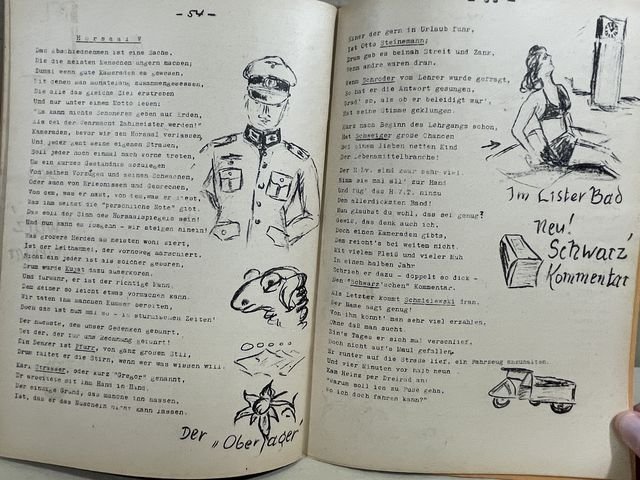 - 54 -
Hörsaal V
Das Abschiednehmen ist eine Sache,
Die die meisten Menschen ungern machen;
Zumal wenn gute Kameraden es gewesen,
Mit denen man monatelang zusammengesessen,
Die alle das gleiche Ziel erstreben
Und nur unter einem Motto leben:
"Es kann nichts Schöneres geben auf Erden,
Als bei der Wehrmacht Zahlmeister werden!"
Kameraden, bevor wir den Hörsaal verlassen,
Und jeder geht seine eigenen Strasen,
Soll jeder noch einmal nach vorne treten,
Um ein kurzes Geständnis
Von seinen Vorzügen und seinen Schwächen,
Oder auch von Erlebnissen und Gebrechen,
Von dem, was er hast, von dem, was er liebt,
Was ihm selbst die "persönliche Note" gibt.
Das soll der Sinn des Hörsaalspiegels sein!
Und nun kann es losgehn - wir steigen hinein!
Was grösere Herden am meisten wohl ziert,
Ist der Leithammel, der vorneweg marschiert.
Nicht ein jeder ist als solcher geboren,
Drum wurde Kujat dazu auserkoren.
Und fürwahr, er ist der richtige Mann,
Dem keiner so leicht etwas vormachen kann.
Wir taten ihm manchen Kummer bereiten,
Doch das ist nun mal so - in stürmischen Zeiten!
Der nächste, dem unser Gedenken gebührt,
Ist der, der für uns Rechnung geführt!
Ein Denker ist Pfurr, von ganz grosem Stil,
Drum faltet er die Stirn, wenn wer was wissen will.
Karl Strasser, oder kurz "Gregor" genannt,
Er arbeitete mit ihm Hand in Hand.
Der einzige Grund, das manche ihn hassen,
Ist, das er das Nuscheln nicht kann lassen.
Der „Oberjäger"
Einer der gern in Urlaub fuhr,
Ist Otto Steinemann;
Drum gab es beinah Streit und Zank,
Wenn andre waren dran.
Wenn Schröder vom Lehrer wurde gefragt,
So hat er die Antwort gesungen,
Grad' so, als ob er beleidigt wär',
Hat seine Stimme geklungen.
Kurz nach Beginn des Lehrgangs schon,
Hat Schweiger grose Chancen
Bei einem lieben netten Kind
Der Lebensmittelbranche!
Der H Dv. sind zwar sehr viel.
Nimm sie mal all' zur Hand
Und füg' das H.V.T. hinzu
Den allerdicksten Band!
Nun glaubst du wohl, das sei genug?
Gewis, das denk auch ich.
Doch einen Kameraden gibts,
Dem reicht's bei weitem nicht.
Mit vielem Fleis und vieler Müh
In einem halben Jahr
Schrieb er dazu - doppelt so dick -
Den "Schwarz'schen" Kommentar.
Als Letzter kommt Schmislewski dran.
Der Name sagt genug!
Von ihm könnt' man sehr viel erzählen,
Ohne das man sucht.
Ein's Tages er sich mal verschlief,
Doch nicht auf's Maul gefallen,
Er runter auf die Strase lief, ein Fahrzeug anzuhalten.
Und vier Minuten vor halb neun
Kam Heinz per Dreirad an:
"Warum soll ich zu Fuse gehn,
Wo ich doch fahren kann?"
Im Lister Bad
Neu!
'Schwarz'
Kommentar